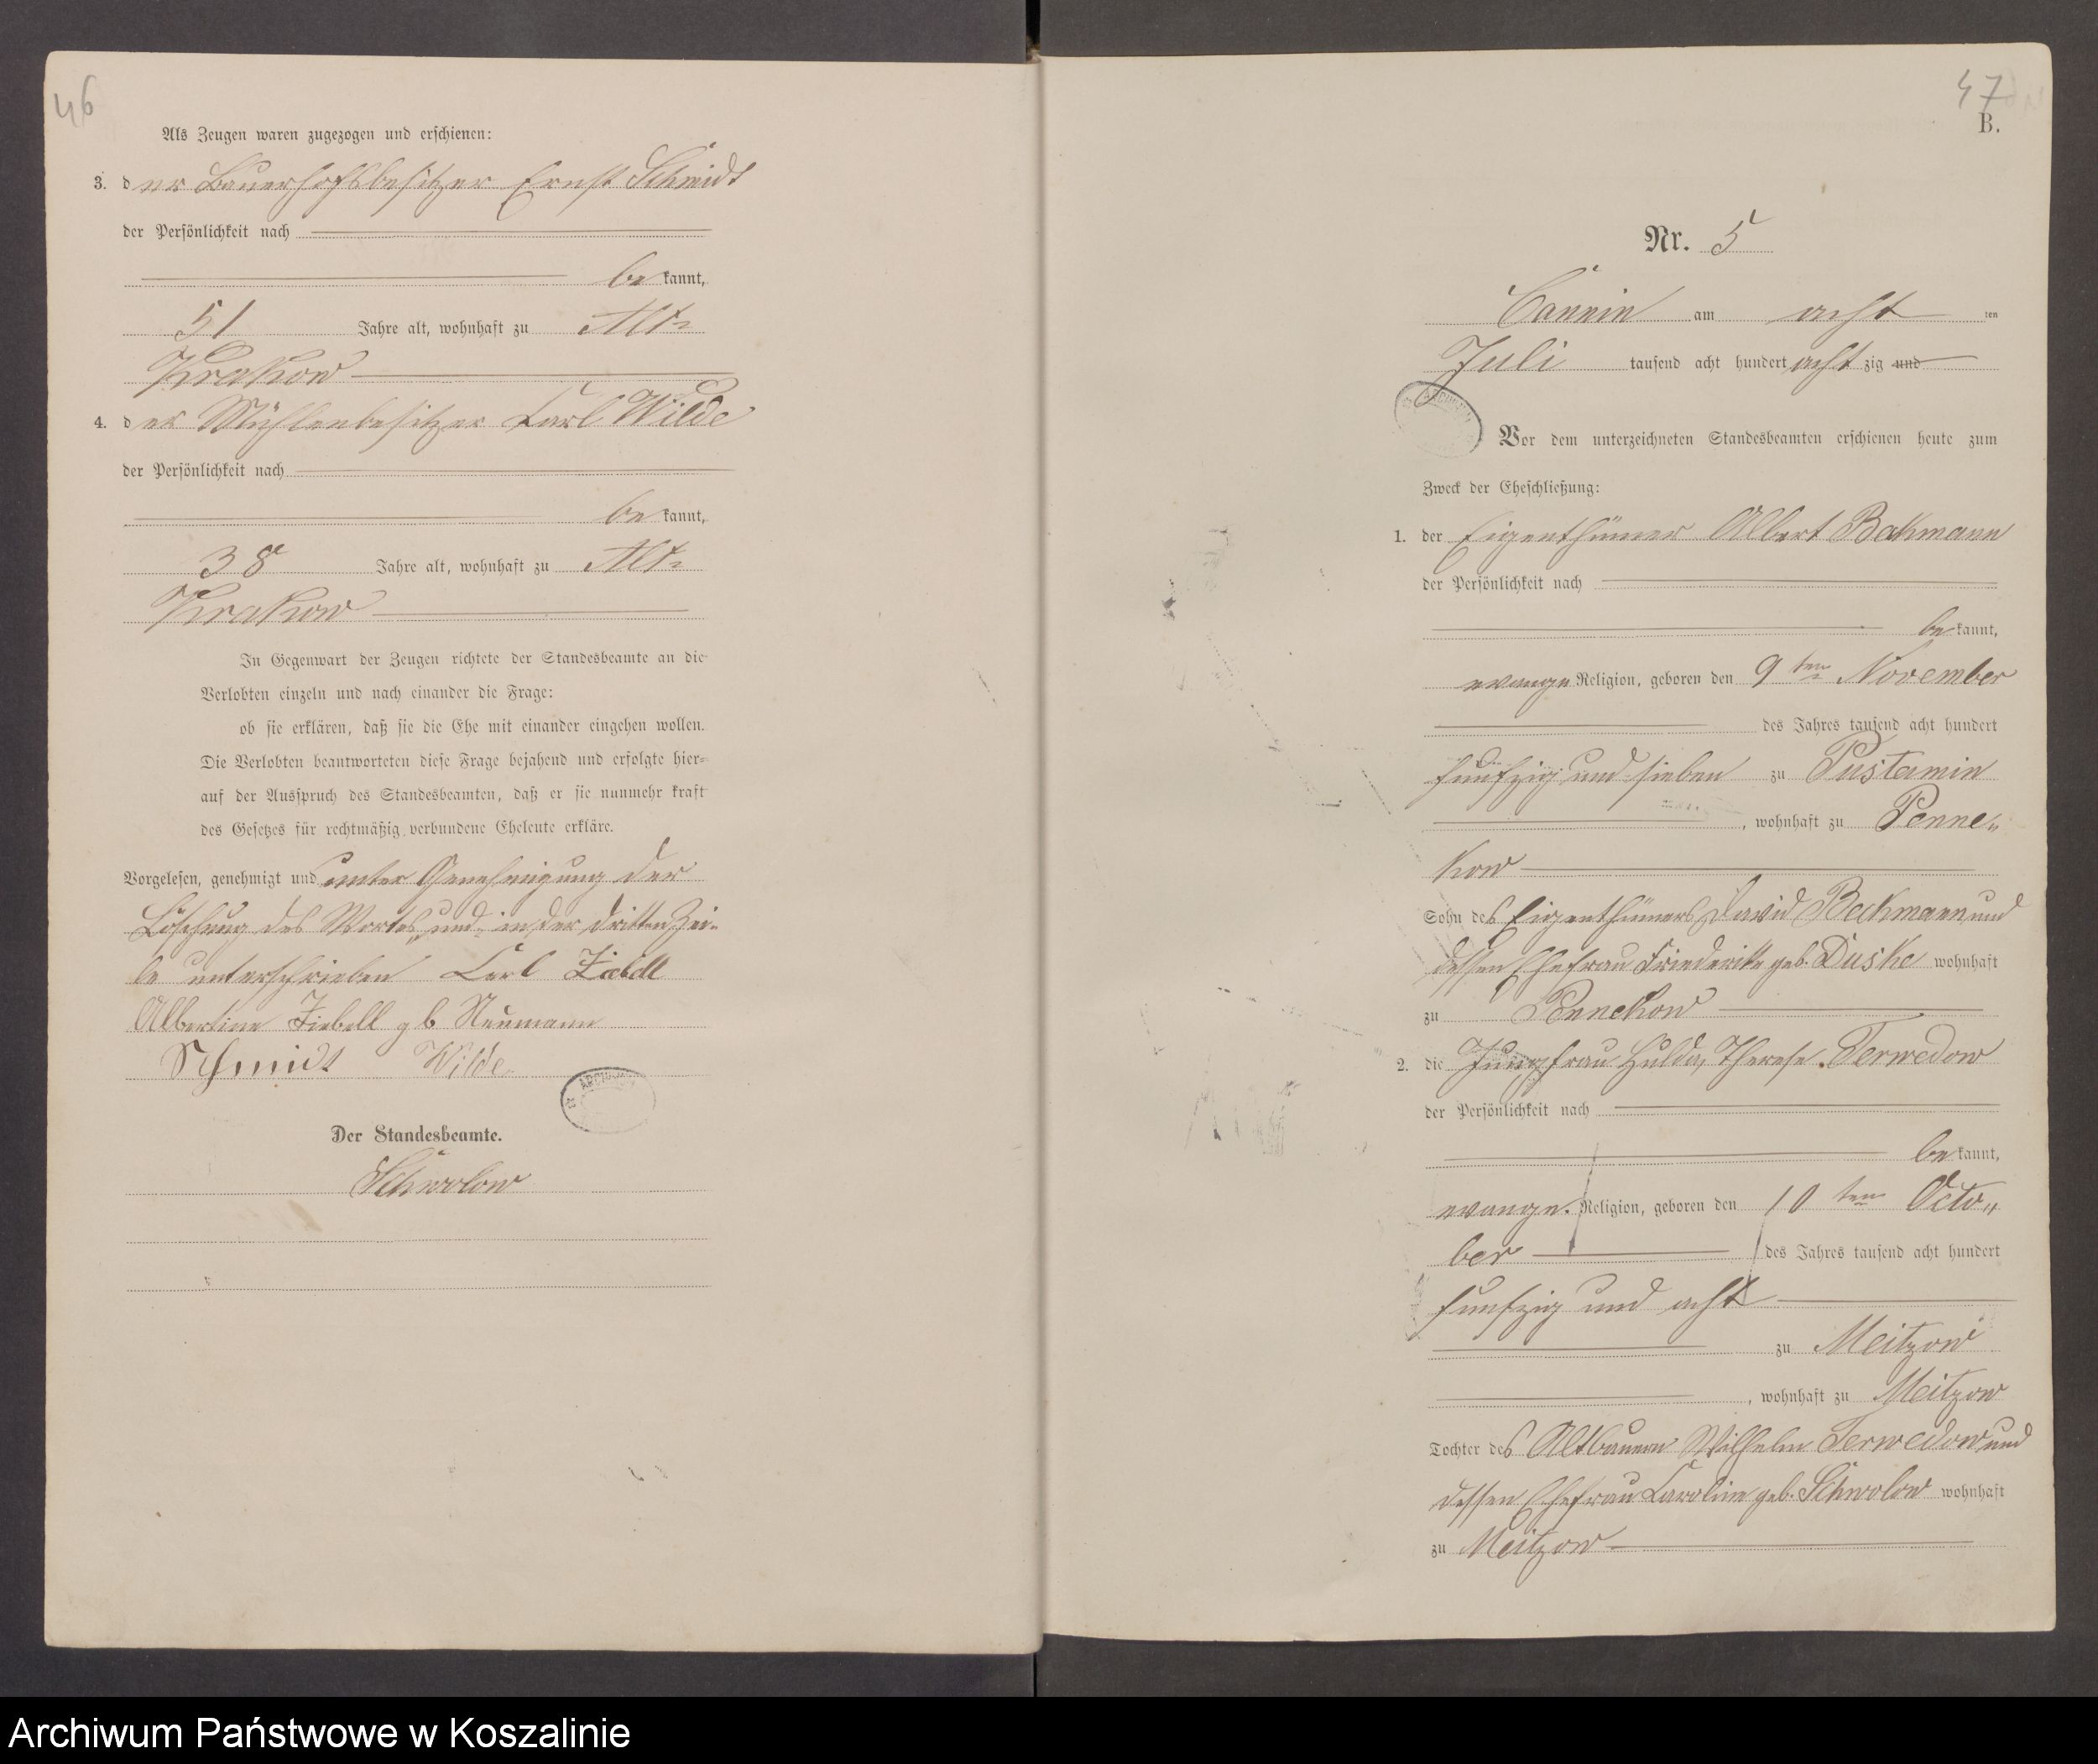 46
Als Zeugen waren zugezogen und erschienen:
3. der Bauerhofsbesitzer Ernst Schmidt
der Persönlichkeit nach
bekannt,
51 Jahre alt, wohnhaft zu Alt-
Krakow
4. der Mühlenbesitzer Carl Wilde
der Persönlichkeit nach
bekannt,
38 Jahre alt, wohnhaft zu Alt-
Krakow
In Gegenwart der Zeugen richtete der Standesbeamte an die
Verlobten einzeln und nach einander die Frage:
ob sie erklären, daß sie die Ehe mit einander eingehen wollen.
Die Verlobten beantworteten diese Frage bejahend und erfolgte hier-
auf der Ausspruch des Standesbeamten, daß er sie nunmehr kraft
des Gesetzes für rechtmäßig verbundene Eheleute erkläre.
Vorgelesen, genehmigt und unter Genehmigung der
Löschung des Wortes „und“ in der dritten Zei-
le unterschrieben Carl Ziebell
Albertine Ziebell gb Neumann
Schmidt Wilde
ARCHIWUM
Der Standesbeamte.
Schwolow
47
B.
Nr. 5
Cannin am acht ten
Juli tausend acht hundert achtzig und
ARCHIWUM
Vor dem unterzeichneten Standesbeamten erschienen heute zum
Zweck der Eheschließung:
1. der Eigenthümer Albert Bekmann
der Persönlichkeit nach
bekannt,
evange. Religion, geboren den 9ten November
des Jahres tausend acht hundert
funfzig und sieben zu Pustamin
, wohnhaft zu Penne„
kow
Sohn des Eigenthümers David Bekmann und
dessen Ehefrau Friederike geb. Duske wohnhaft
zu Pennekow
2. die Jungfrau Hulda, Therese Terwedow
der Persönlichkeit nach
bekannt,
evange. Religion, geboren den 10ten Octo„
ber des Jahres tausend acht hundert
funfzig und acht
zu Meitzow
, wohnhaft zu Meitzow
Tochter des Altbauern Wilhelm Terwedow und
dessen Ehefrau Caroline geb. Schwolow wohnhaft
zu Meitzow
Archiwum Państwowe w Koszalinie